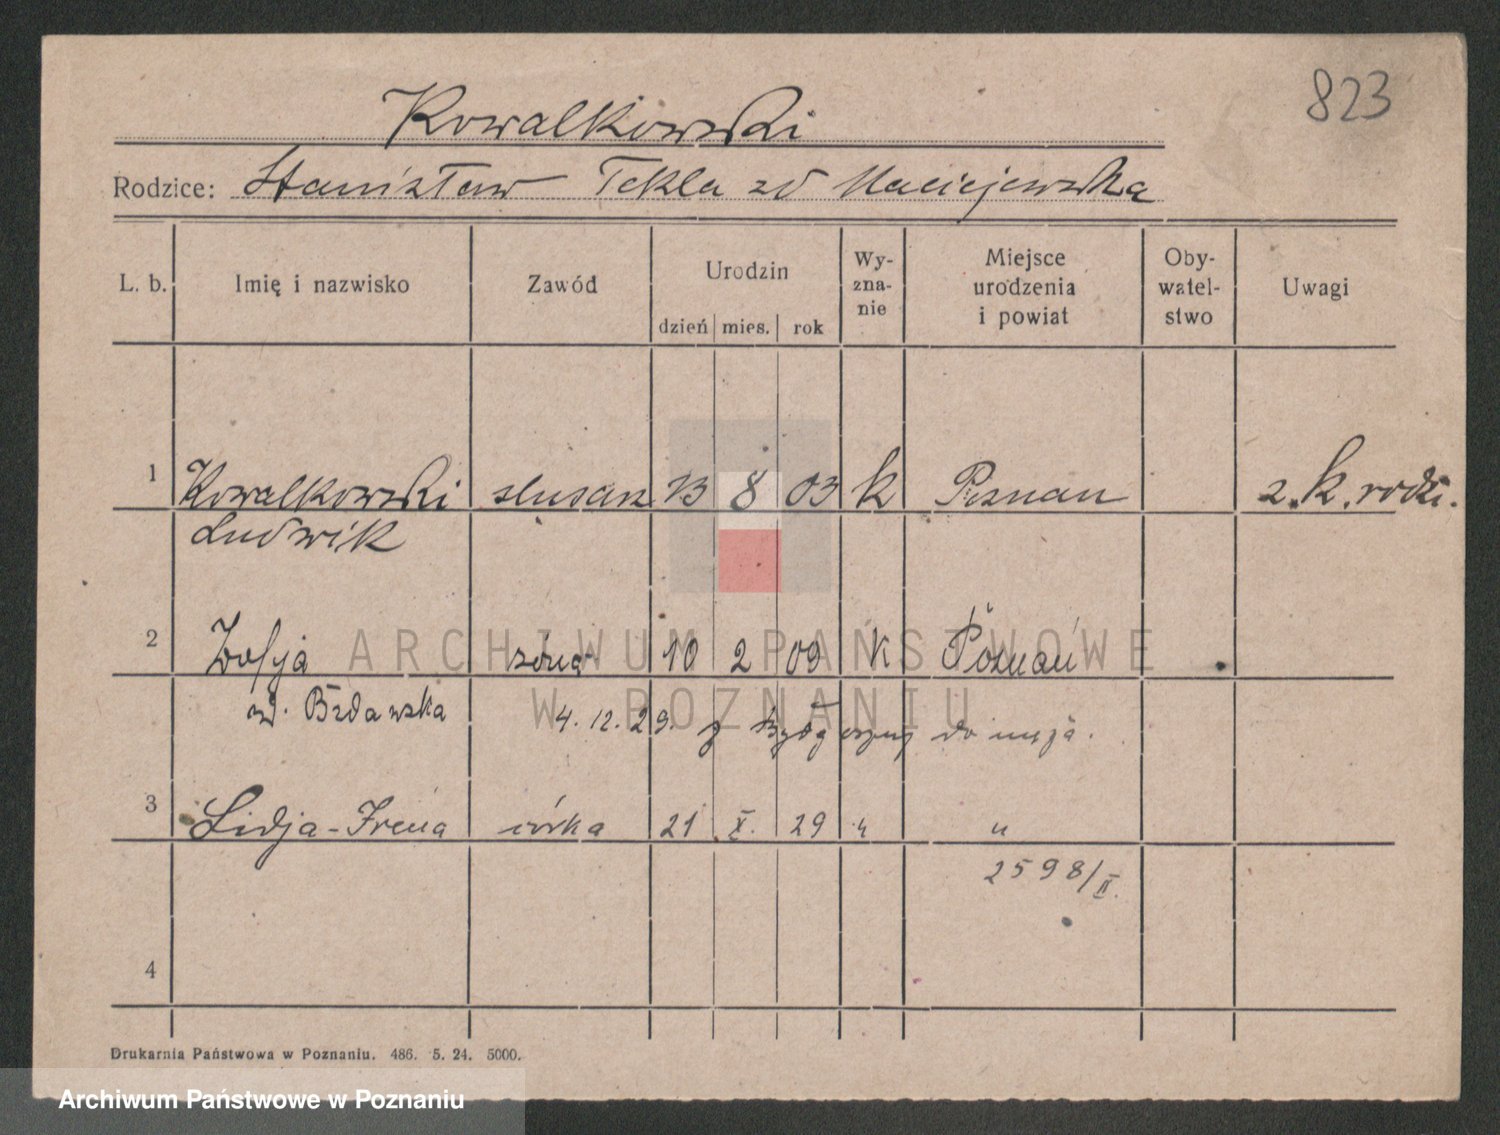 823
Kowalkowski
Rodzice: Stanisław Tekla zd Maciejewska
L. b. Imię i nazwisko Zawód Urodzin dzień mies. rok Wy-zna-nie Miejsce urodzenia i powiat Oby-watel-stwo Uwagi
1 Kowalkowski ślusarz 13 8 03 k Poznań z. k. rodz.
Ludwik
2 Zofja żona 10 2 09 k Poznań
zd. Bzdawska 4. 12. 29. z Bydgoszczy do męża.
3 Lidja-Irena córka 21 X. 29 " "
2598/II.
4
Drukarnia Państwowa w Poznaniu. 486. 5. 24. 5000.
ARCHIWUM PAŃSTWOWE
W POZNANIU
Archiwum Państwowe w Poznaniu